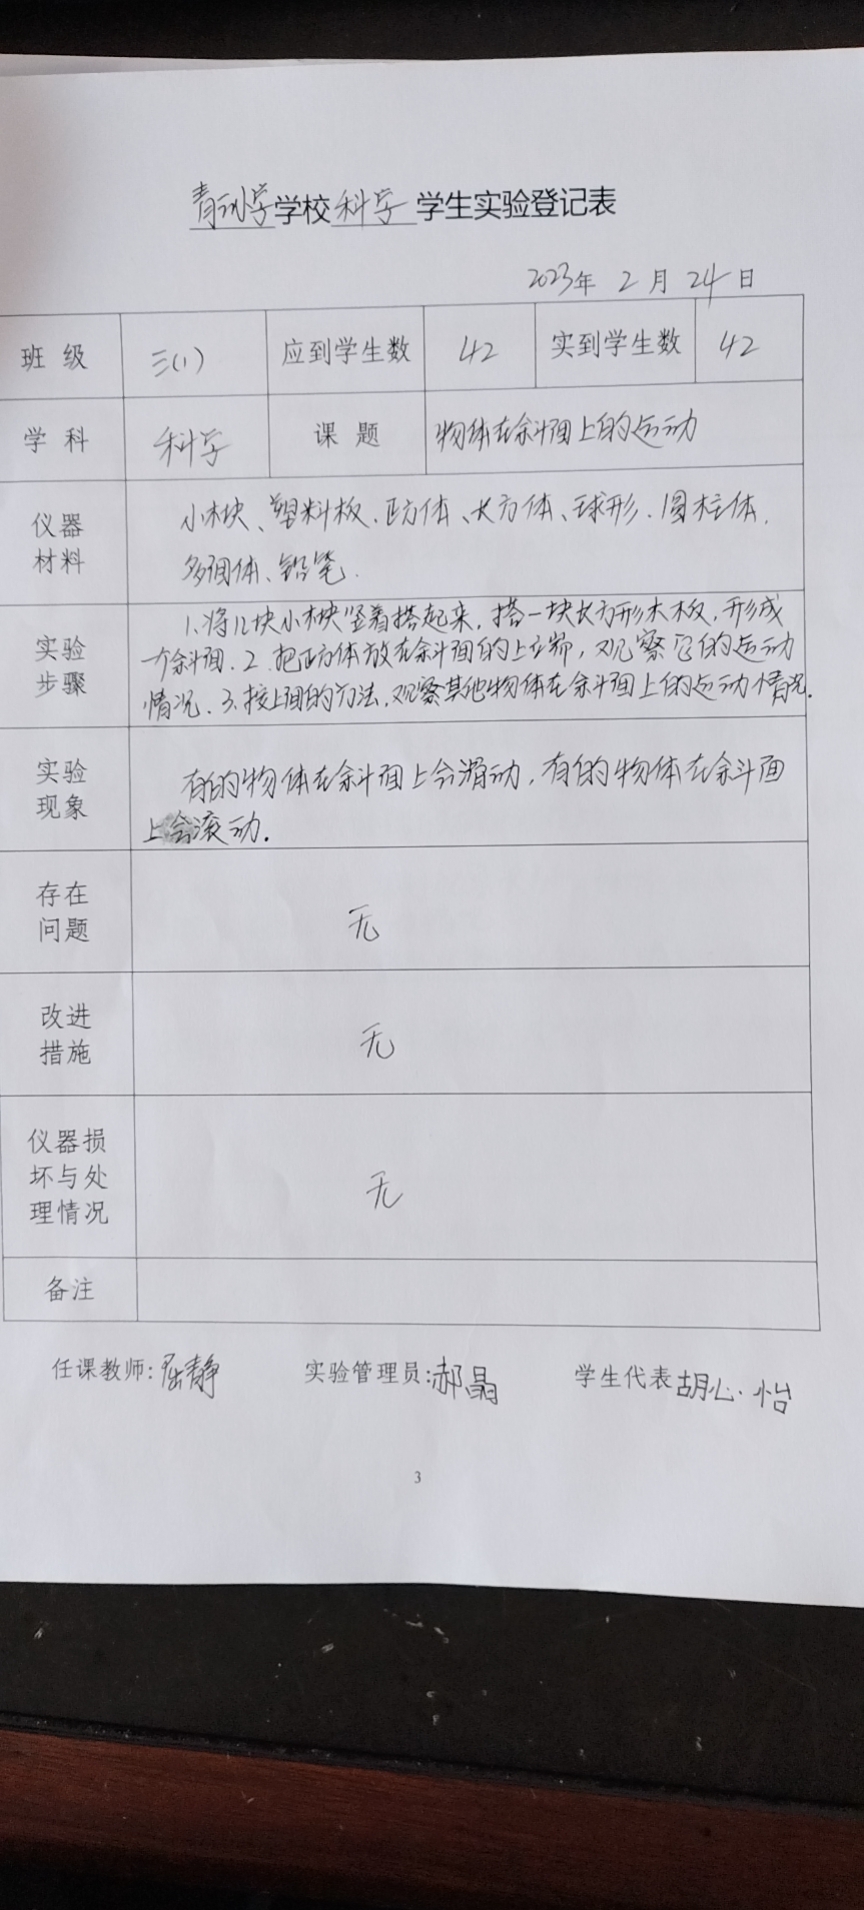 学校科学学生实验登记表
2023年 2 月 24 日
班 级 三(1) 应到学生数 42 实到学生数 42
学 科 科学 课 题 物体在斜面上的运动
仪器
材料
小木块、塑料板、正方体、长方体、球形、圆柱体、
多面体、铅笔.
实验
步骤
1.将几块小木块竖着搭起来,搭一块长方形木板,形成
一个斜面.2.把正方体放在斜面的上端,观察它的运动
情况.3.按上面的方法,观察其他物体在斜面上的运动情况.
实验
现象
有的物体在斜面上会滑动,有的物体在斜面
上会滚动.
存在
问题
无
改进
措施
无
仪器损
坏与处
理情况
无
备注
任课教师:屈静 实验管理员:郝晶 学生代表胡心怡
3